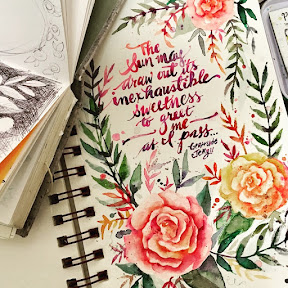 The
Sun may
draw out its
inexhaustible
sweetness
to greet
me
as I pass...
Gertrude
Jekyll